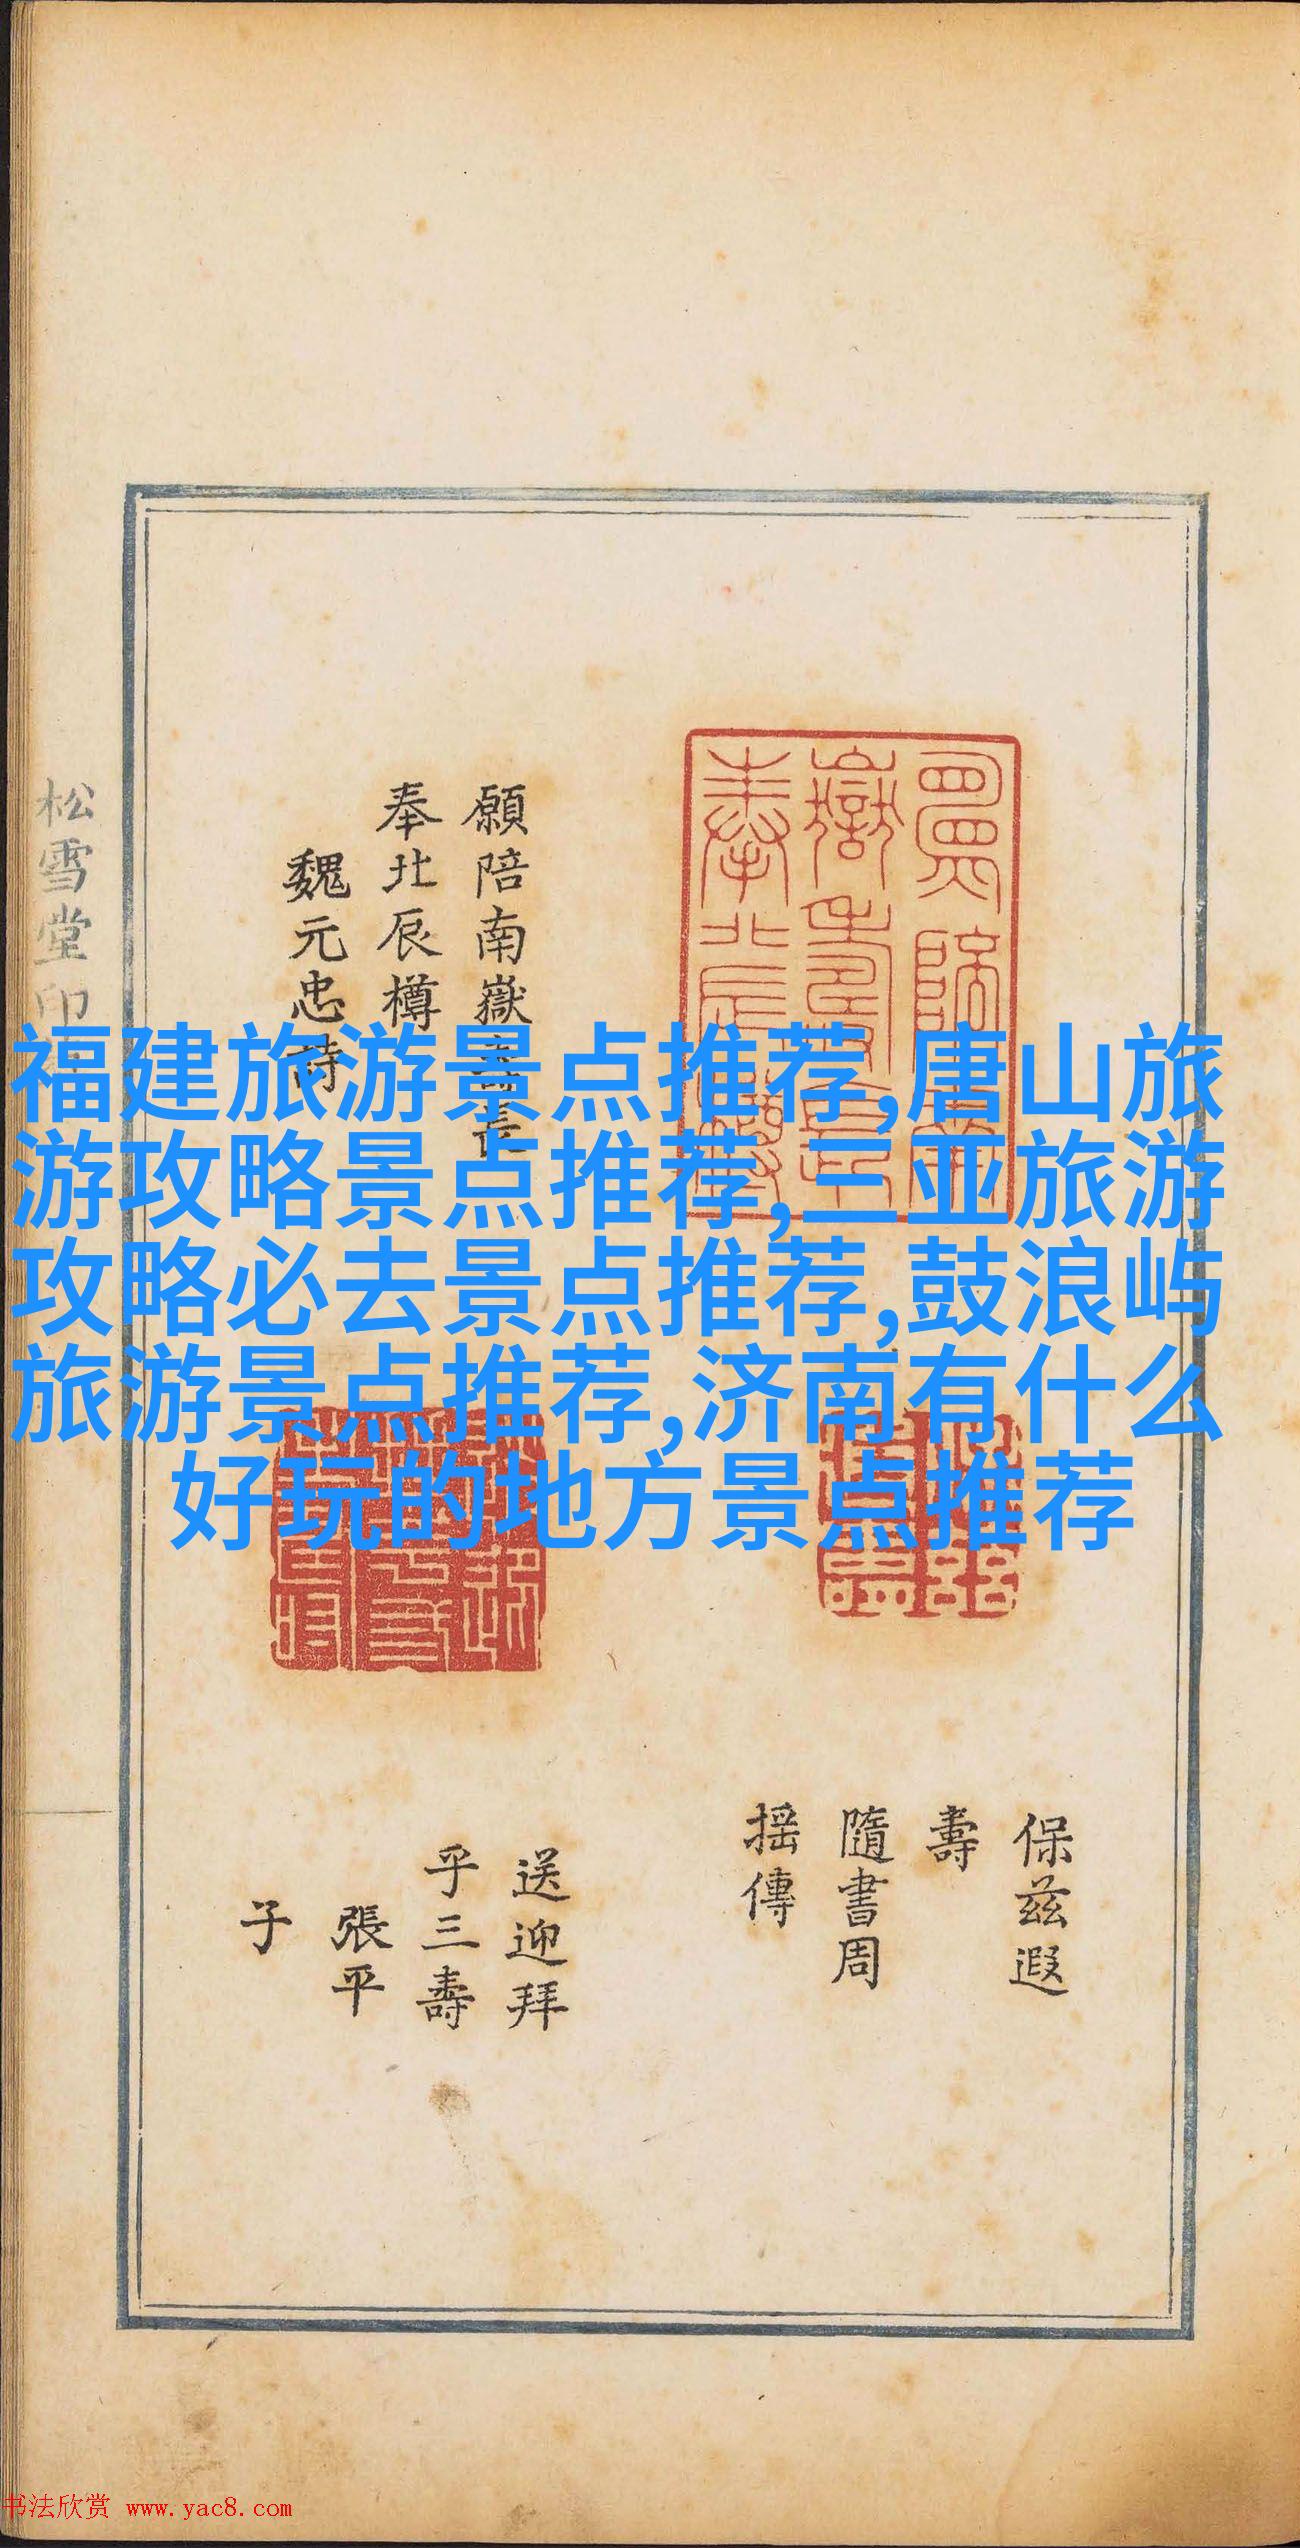 福建旅游景点推荐,唐山旅
游攻略景点推荐,三亚旅游
攻略必去景点推荐,鼓浪屿
旅游景点推荐,济南有什么
好玩的地方景点推荐
願陪南嶽壽長
奉北辰樽
魏元忠詩
保茲遐
壽
隨書周
搖傳
送迎拜
乎三壽
張平
子
松雪堂印
书法欣赏 www.yac8.com